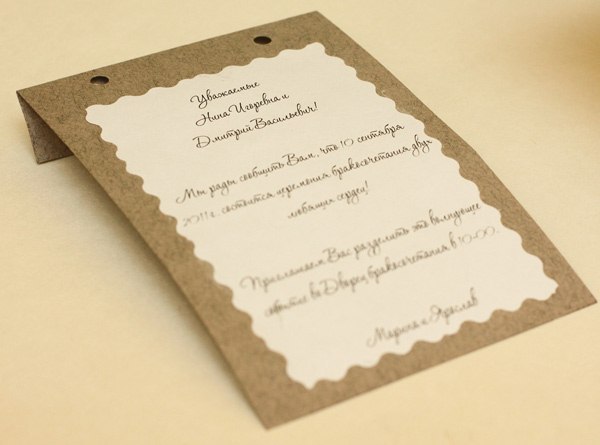 Уважаемые
Нина Игоревна и
Дмитрий Васильевич!
Мы рады сообщить Вам, что 10 сентября
2011г. состоится церемония бракосочетания двух
любящих сердец!
Приглашаем Вас разделить это волнующее
событие во Дворец бракосочетания в 10-00.
Марина и Ярослав